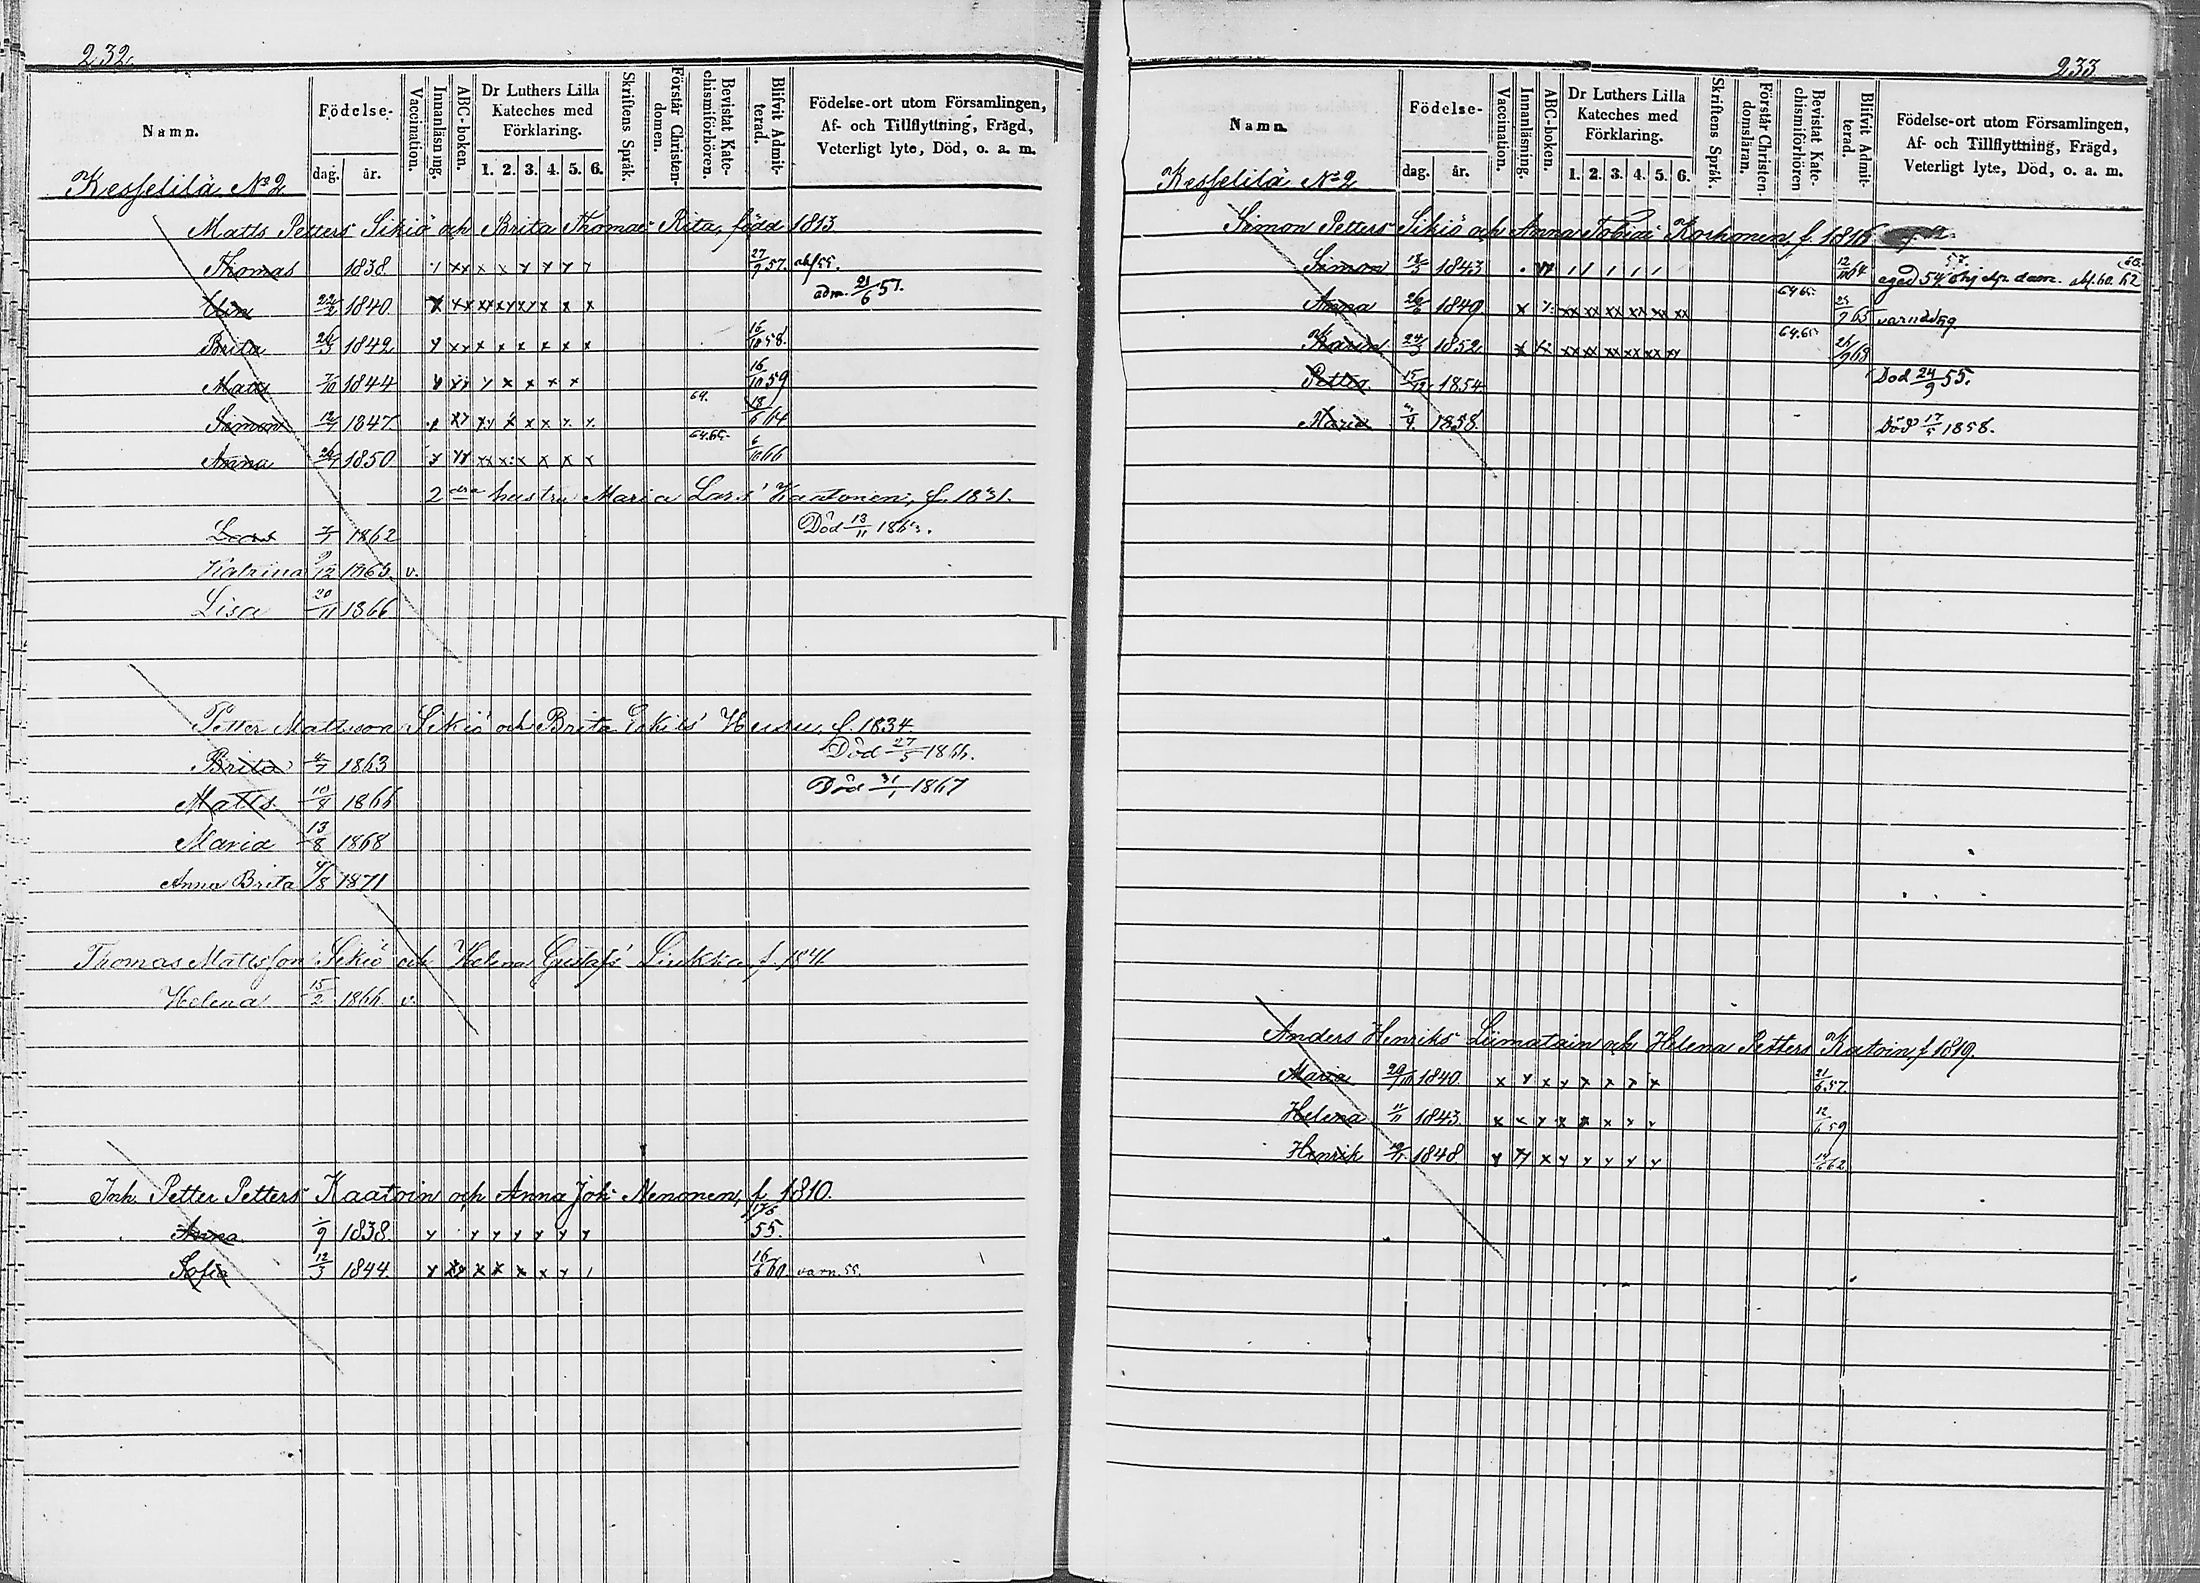 232.
Namn.
Födelse-
dag.
år.
Vaccination.
Innanläsning.
ABC-boken.
Dr Luthers Lilla
Kateches med
Förklaring.
1. 2. 3. 4. 5. 6.
Skriftens Språk.
Förstår Christen-
domen.
Bevistat Kate-
chismiförhören.
Blifvit Admit-
terad.
Födelse-ort utom Församlingen,
Af- och Tillflyttning, Frägd,
Veterligt lyte, Död, o. a. m.
Kesselilä No 2
Matts Petters Sikiö och Brita Thomae Rita, född 1813
Thomas 1838 27/9 57. abs 55.
22/2 1840 adm. 21/6 57.
Brita 26/3 1842 16/10 58.
Matts 7/10 1844 16/10 59
Simon 12/7 1847 64. 18/6 64
Anna 1850 64.65. 6/10 66
2dra hustru Maria Lars' Kaatonen, f. 1831.
Lars 1862 Död 13/11 186
Katrina 9/12 1863 v.
Lisa 20/11 1866
Petter Mattsson Sikiö och Brita Eskils' Husu, f. 1834
Brita 1863 Död 27/5 1866.
Matts 10/8 1866 Död 31/1 1867
Maria 13/8 1868
Anna Brita 4/8 1871
Thomas Mattsson Sikiö och Helena Gustafs' Liukka, f. 1841
Helena 15/2 1866 v.
Inh. Petter Petters Kaatoin och Anna Joh. Nenonen, f. 1810.
Anna 1/9 1838. 17/6 55.
Sofia 12/3 1844. 16/6 60. varn. 55.
233
Namn.
Födelse-
dag.
år.
Vaccination.
Innanläsning.
ABC-boken.
Dr Luthers Lilla
Kateches med
Förklaring.
1. 2. 3. 4. 5. 6.
Skriftens Språk.
Förstår Christen-
domsläran.
Bevistat Kate-
chismiförhören
Blifvit Admit-
terad.
Födelse-ort utom Församlingen,
Af- och Tillflyttning, Frägd,
Veterligt lyte, Död, o. a. m.
Kesselilä No 2
Simon Petters Sikiö och Anna Tobiae Korhonen, f. 1816
Simon 18/3 1843 12/10 64 57. 54 abs. 60. 62
Anna 26/6 1849 64.65. 25/9 65 varnad 59
Karin 24/3 1852 64.65. 25/9 68
Petter 15/12 1854 Död 24/9 55.
Maria 1858. Död 17/5 1858.
Anders Henriks Liimatain och Helena Petters Katoin, f 1819.
Maria 29/10 1840. 21/6 57
Helena 11/11 1843. 12/6 59
Henrik 1848 62